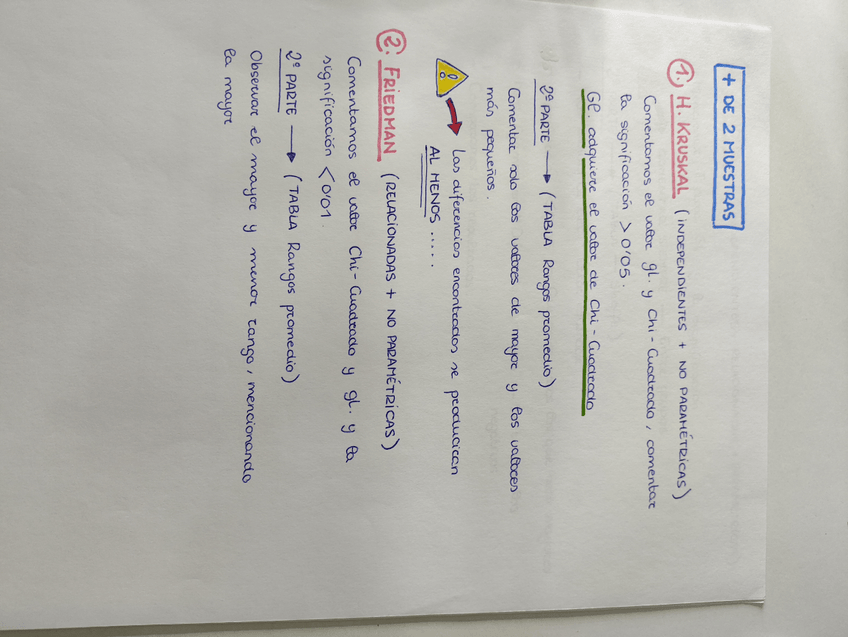 + DE 2 MUESTRAS
1. H. KRUSKAL (INDEPENDIENTES + NO PARAMÉTRICAS)
Comentamos el valor gl. y Chi-Cuadrado, comentar
la significación > 0'05.
Gl. adquiere el valor de Chi-Cuadrado
2º PARTE → (TABLA Rangos promedio)
Comentar solo los valores de mayor y los valores
más pequeños.
! → Las diferencias encontradas se producirían
AL MENOS .....
2. FRIEDMAN (RELACIONADAS + NO PARAMÉTRICAS)
Comentamos el valor Chi-Cuadrado y gl. y la
significación < 0'01.
2º PARTE → (TABLA Rangos promedio)
Observar el mayor y menor rango, mencionando
la mayor